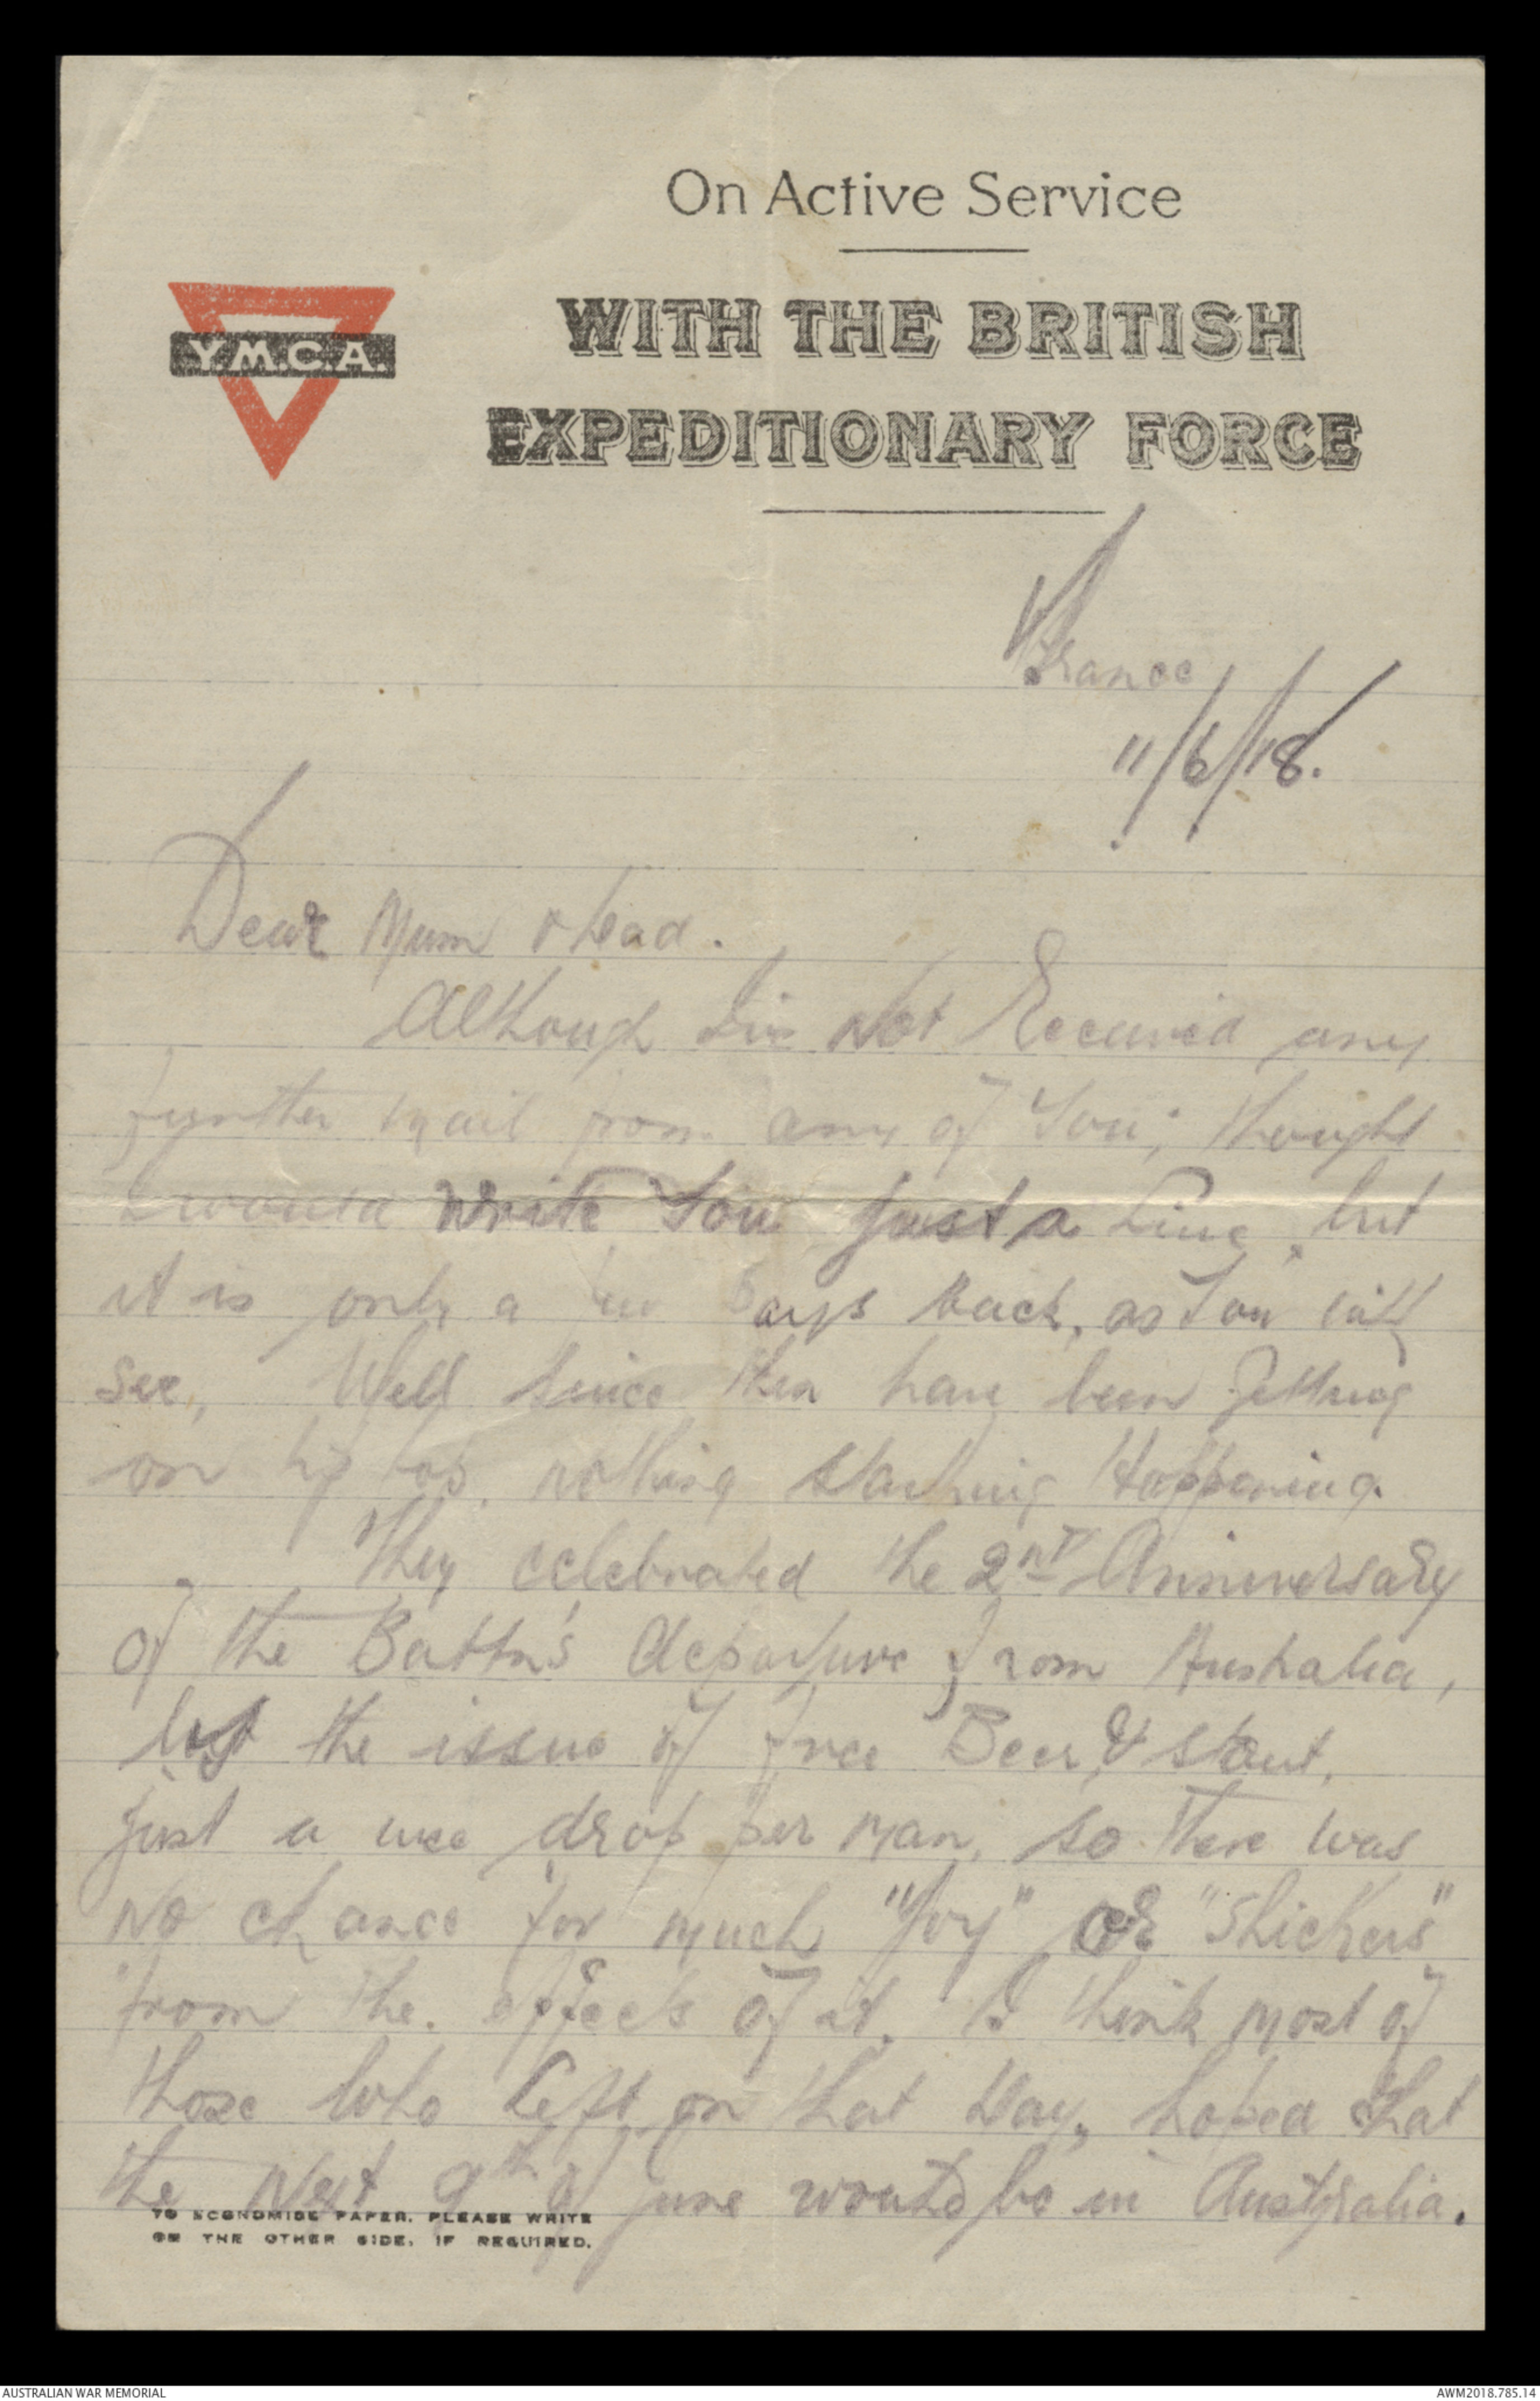 On Active Service
WITH THE BRITISH
Y.M.C.A.
EXPEDITIONARY FORCE
France
11/6/18.
Dear Mum & Dad.
Although I've Not Received any
further mail from any of You; thought
I would Write You just a Line, but
it is only a few Days back, as You will
see, Well since then have been getting
on tip top, nothing startling Happening.
They celebrated the 2nd Anniversary
of the Battn's departure from Australia,
by the issue of free Beer & stout,
just a wee drop per man, so there was
No chance for much "Joy" or "Shickers"
from the. effects of it. I think most of
those who left on that Day, hoped that
the Next 9th of June would be in Australia.
TO ECONOMISE PAPER, PLEASE WRITE
ON THE OTHER SIDE, IF REQUIRED.
AUSTRALIAN WAR MEMORIAL
AWM2018.785.14